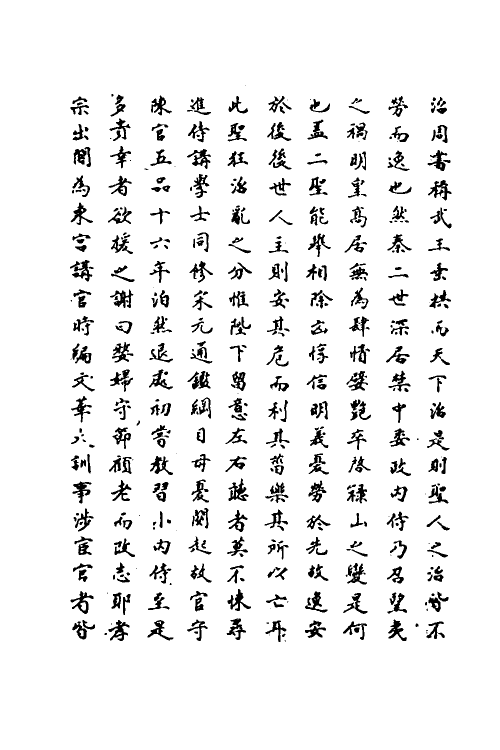 治周書稱武王垂拱而天下治是則聖人之治皆不
勞而逸也然秦二世深居禁中委政内侍乃召望夷
之禍明皇髙居無為肆情嬖艶卒啓祿山之變是何
也盖二聖能舉相除凶惇信明義憂勞於先故逸安
於後後世人主則安其危而利其菑樂其所以亡耳
此聖狂治亂之分惟陛下留意左右聽者莫不悚尋
進侍講學士同修宋元通鑑綱目母憂闋起故官守
陳官五品十六年泊然退處初嘗教習小内侍至是
多貴幸者欲援之謝曰嫠婦守節顧老而改志耶孝
宗出閣為東宫講官時編文華大訓事涉宦官者皆